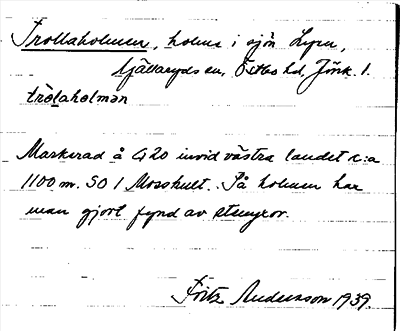 Trollaholmen, holme i sjön Lyen,
Kjällaryds sn, Östbo hd, Jönk. l.
trò̀laholmən
Markerad å G20 invid västra landet c:a
1100 m. SO 1 Mosshult. På holmen har
man gjort fynd av stenyxor.
Fritz Andersson 1939.